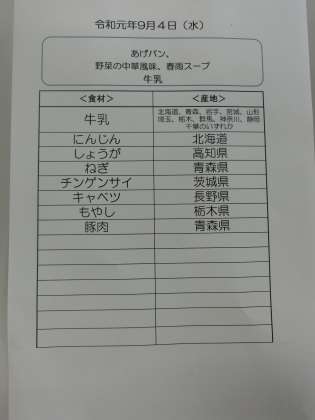 令和元年9月4日（水）
あげパン、
野菜の中華風味、春雨スープ
牛乳
＜食材＞ ＜産地＞
牛乳 北海道、青森、岩手、宮城、山形
埼玉、栃木、群馬、神奈川、静岡
千葉のいずれか
にんじん 北海道
しょうが 高知県
ねぎ 青森県
チンゲンサイ 茨城県
キャベツ 長野県
もやし 栃木県
豚肉 青森県